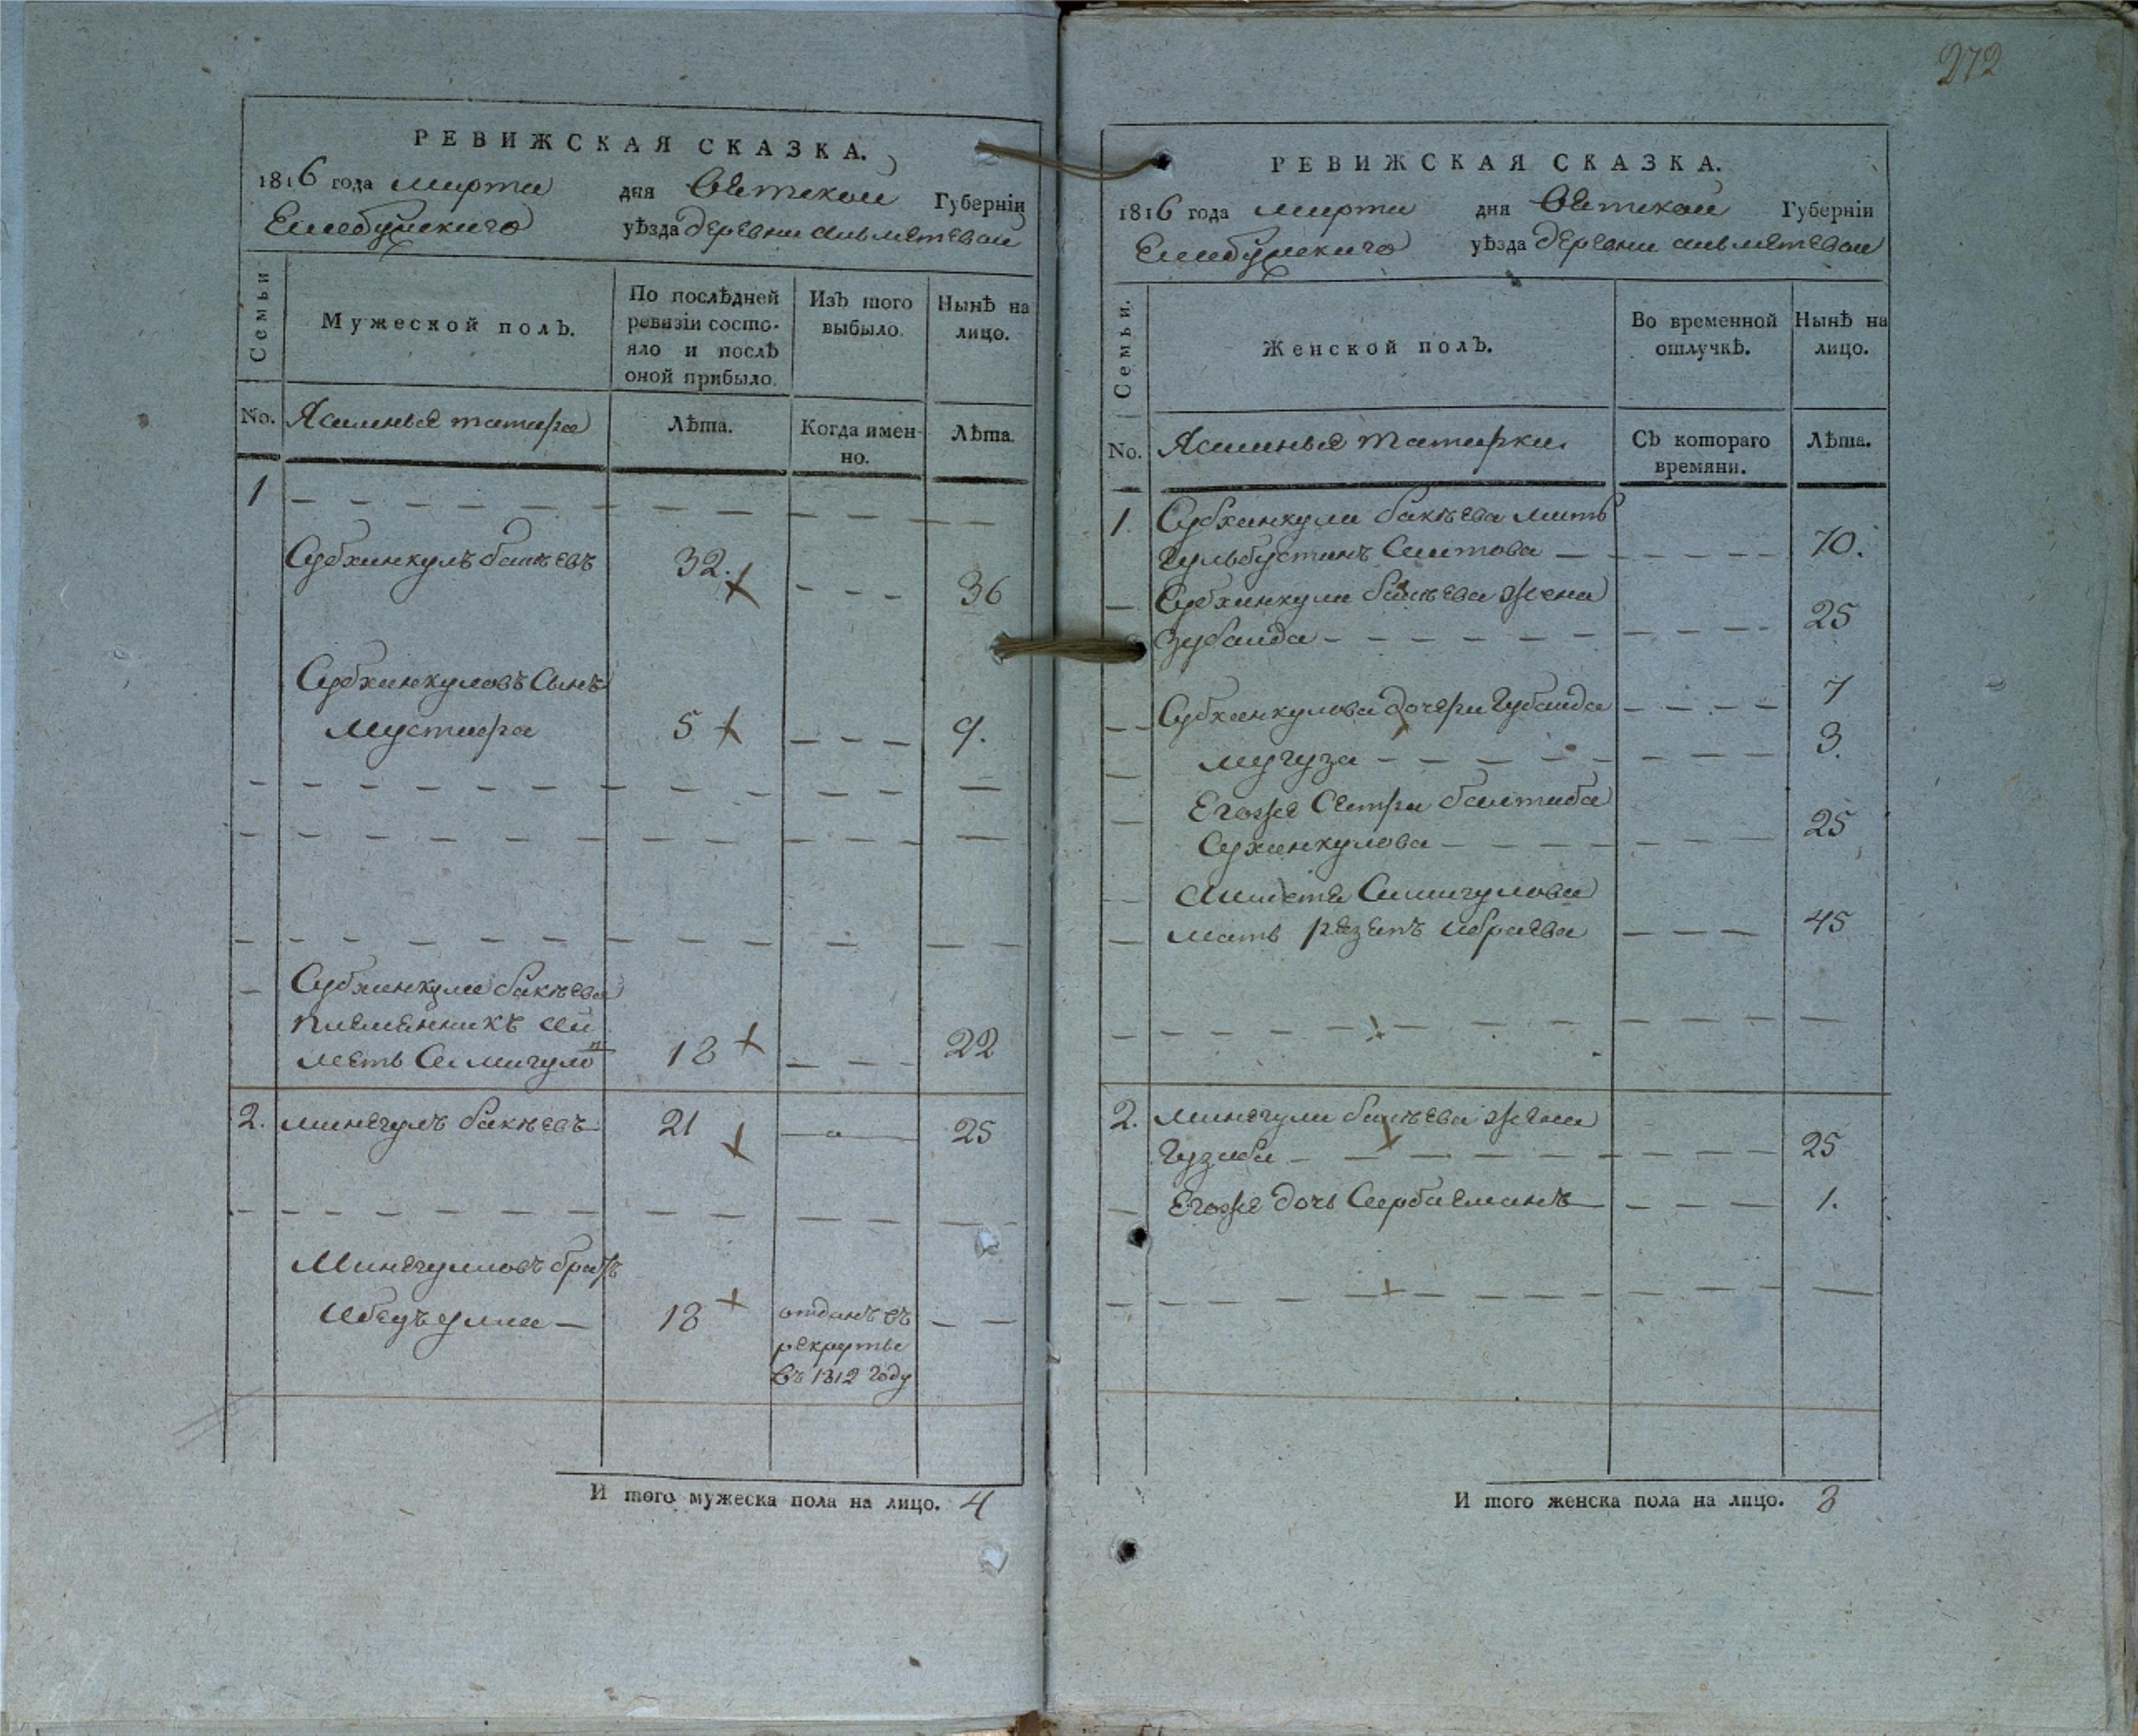 272
РЕВИЖСКАЯ СКАЗКА.
1816 года марта дня Вятской Губерніи
Елабужскаго уѣзда деревни
Семьи
Мужеской полъ.
По послѣдней ревизіи состо-
яло и послѣ оной прибыло.
Изъ того выбыло.
Нынѣ на лицо.
No. Ясашные татара
Лѣта.
Когда имен-
но.
Лѣта.
1
Субханкулъ бакѣевъ 32. 36
Субханкуловъ Сынъ
Мустафа 5 9.
Субханкула бакѣева
племянникъ
18 22
2. минегулъ бакѣевъ 21 25
Минегуловъ братъ
18 отданъ въ
рекруты
въ 1812 году
И того мужеска пола на лицо. 4
РЕВИЖСКАЯ СКАЗКА.
1816 года марта дня Вятской Губерніи
Елабужскаго уѣзда деревни
Семьи.
Женской полъ.
Во временной отлучкѣ.
Нынѣ на лицо.
No. Ясашныя татарки.
Съ котораго времяни.
Лѣта.
1. Субханкула бакѣева мать
Гульбустанъ Саитова 70.
Субханкула бакѣева жена
Зубаида 25
Субханкулова дочери Губаида 7
Мугуза 3.
Егоже Сестра
25
мать 45
2. минегула бакѣева жена
25
Егоже дочь 1.
И того женска пола на лицо. 8